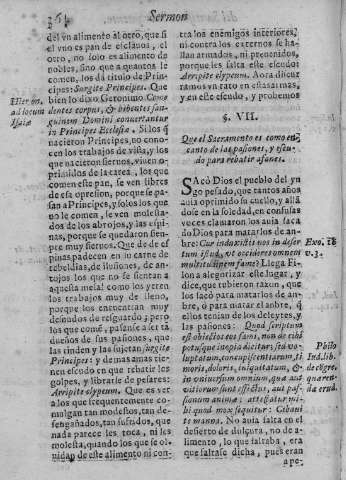 Sermon
del vn alimento al otro, que si
el vno es pan de esclauos, el
otro, no solo es alimento de
nobles, sino que a quantos le
comen, los dà titulo de Prin-
cipes: Surgite Principes. Que
bien lo dixo Geronimo Come-
dentes corpus, & bibentes san-
guinem Domini conuertantur
in Principes Ecclesiæ. Si los q̃
nacieron Principes, no cono-
cen los trabajos de viña, y los
que nacieron sieruos, viuen o-
primidos de la carea, los que
comen este pan, se ven libres
de esa opresion, porque se pas-
san a Principes, y solos los que
no le comen, se ven molesta-
dos de los abrojos, y las espi-
nas, porque se quedaron siem-
pre muy sieruos. Que de de es-
pinas padecen en su carne de
rebeldias, de ilusiones, de an-
tojos los que no se sientan a
aquesta mesa! como los yeren
los trabajos muy de lleno,
porque los encuentran muy
desnudos de resguardo; pero
los que comẽ, passanse a ser ta
dueños de sus passiones, que
las rinden y las sujetan surgite
Principes: y demas mas tie-
nen escudo en que rebatir los
golpes, y librarle de pesares:
Arripite clypeum. Que es ver
a los que frequentemente co-
mulgan tan modestos, tan de-
sengañados, tan sufridos, que
nada parece les toca, ni les
molesta, quando los que se ol-
uidan de este alimento ni con-
Hieron.
ad locum
Isaiæ
tra los enemigos interiores,
ni contra los externos se ha-
llan armados, ni preuenidos,
porque les falta este escudo:
Arripite clypeum. Aora discur
ramos vn rato en estas armas,
y en este escudo, y probemos
§. VII.
Que el Sacramento es como en-
canto de las passiones, y escu-
do para rebatir afanes.
SAcó Dios el pueblo del yu
go pesado, que tantos años
auia oprimido su cuello, y allà
dose en la soledad, en confusas
voces clamaron los auia saca
do Dios para matarlos de an-
bre: Cur induxistis nos in deser
tum istud, vt occideres omnem
multitudinem fame? Llega Fi-
lon a alegorizar este lugar, y di-
ze, que tubieron razon, que
los sacó para matarlos de an-
bre, ò para matar el anbre, q̃
ellos tenian de los deleytes, y
las passiones: Quod scriptum
est obiectio tea sani, non de cibi
potusque inopia dicitur; sed vo-
luptatum, concupiscentiarum, ti
moris, doloris, iniquitatum, &
in vniuersum omnium, quæ aut
vitiorum sunt effectus, aut pas-
sionum animæ: attestatur mi-
hi quod mox sequitur: Cibaui
te manna. No auia falta en el
desierto de dulçura, no de a-
limento, lo que faltaba, era
que faltasse dicha, pues eran
ape-
Exo. 16
v. 3.
Philo
Ind. lib.
de cõgre.
quæren-
da erud.